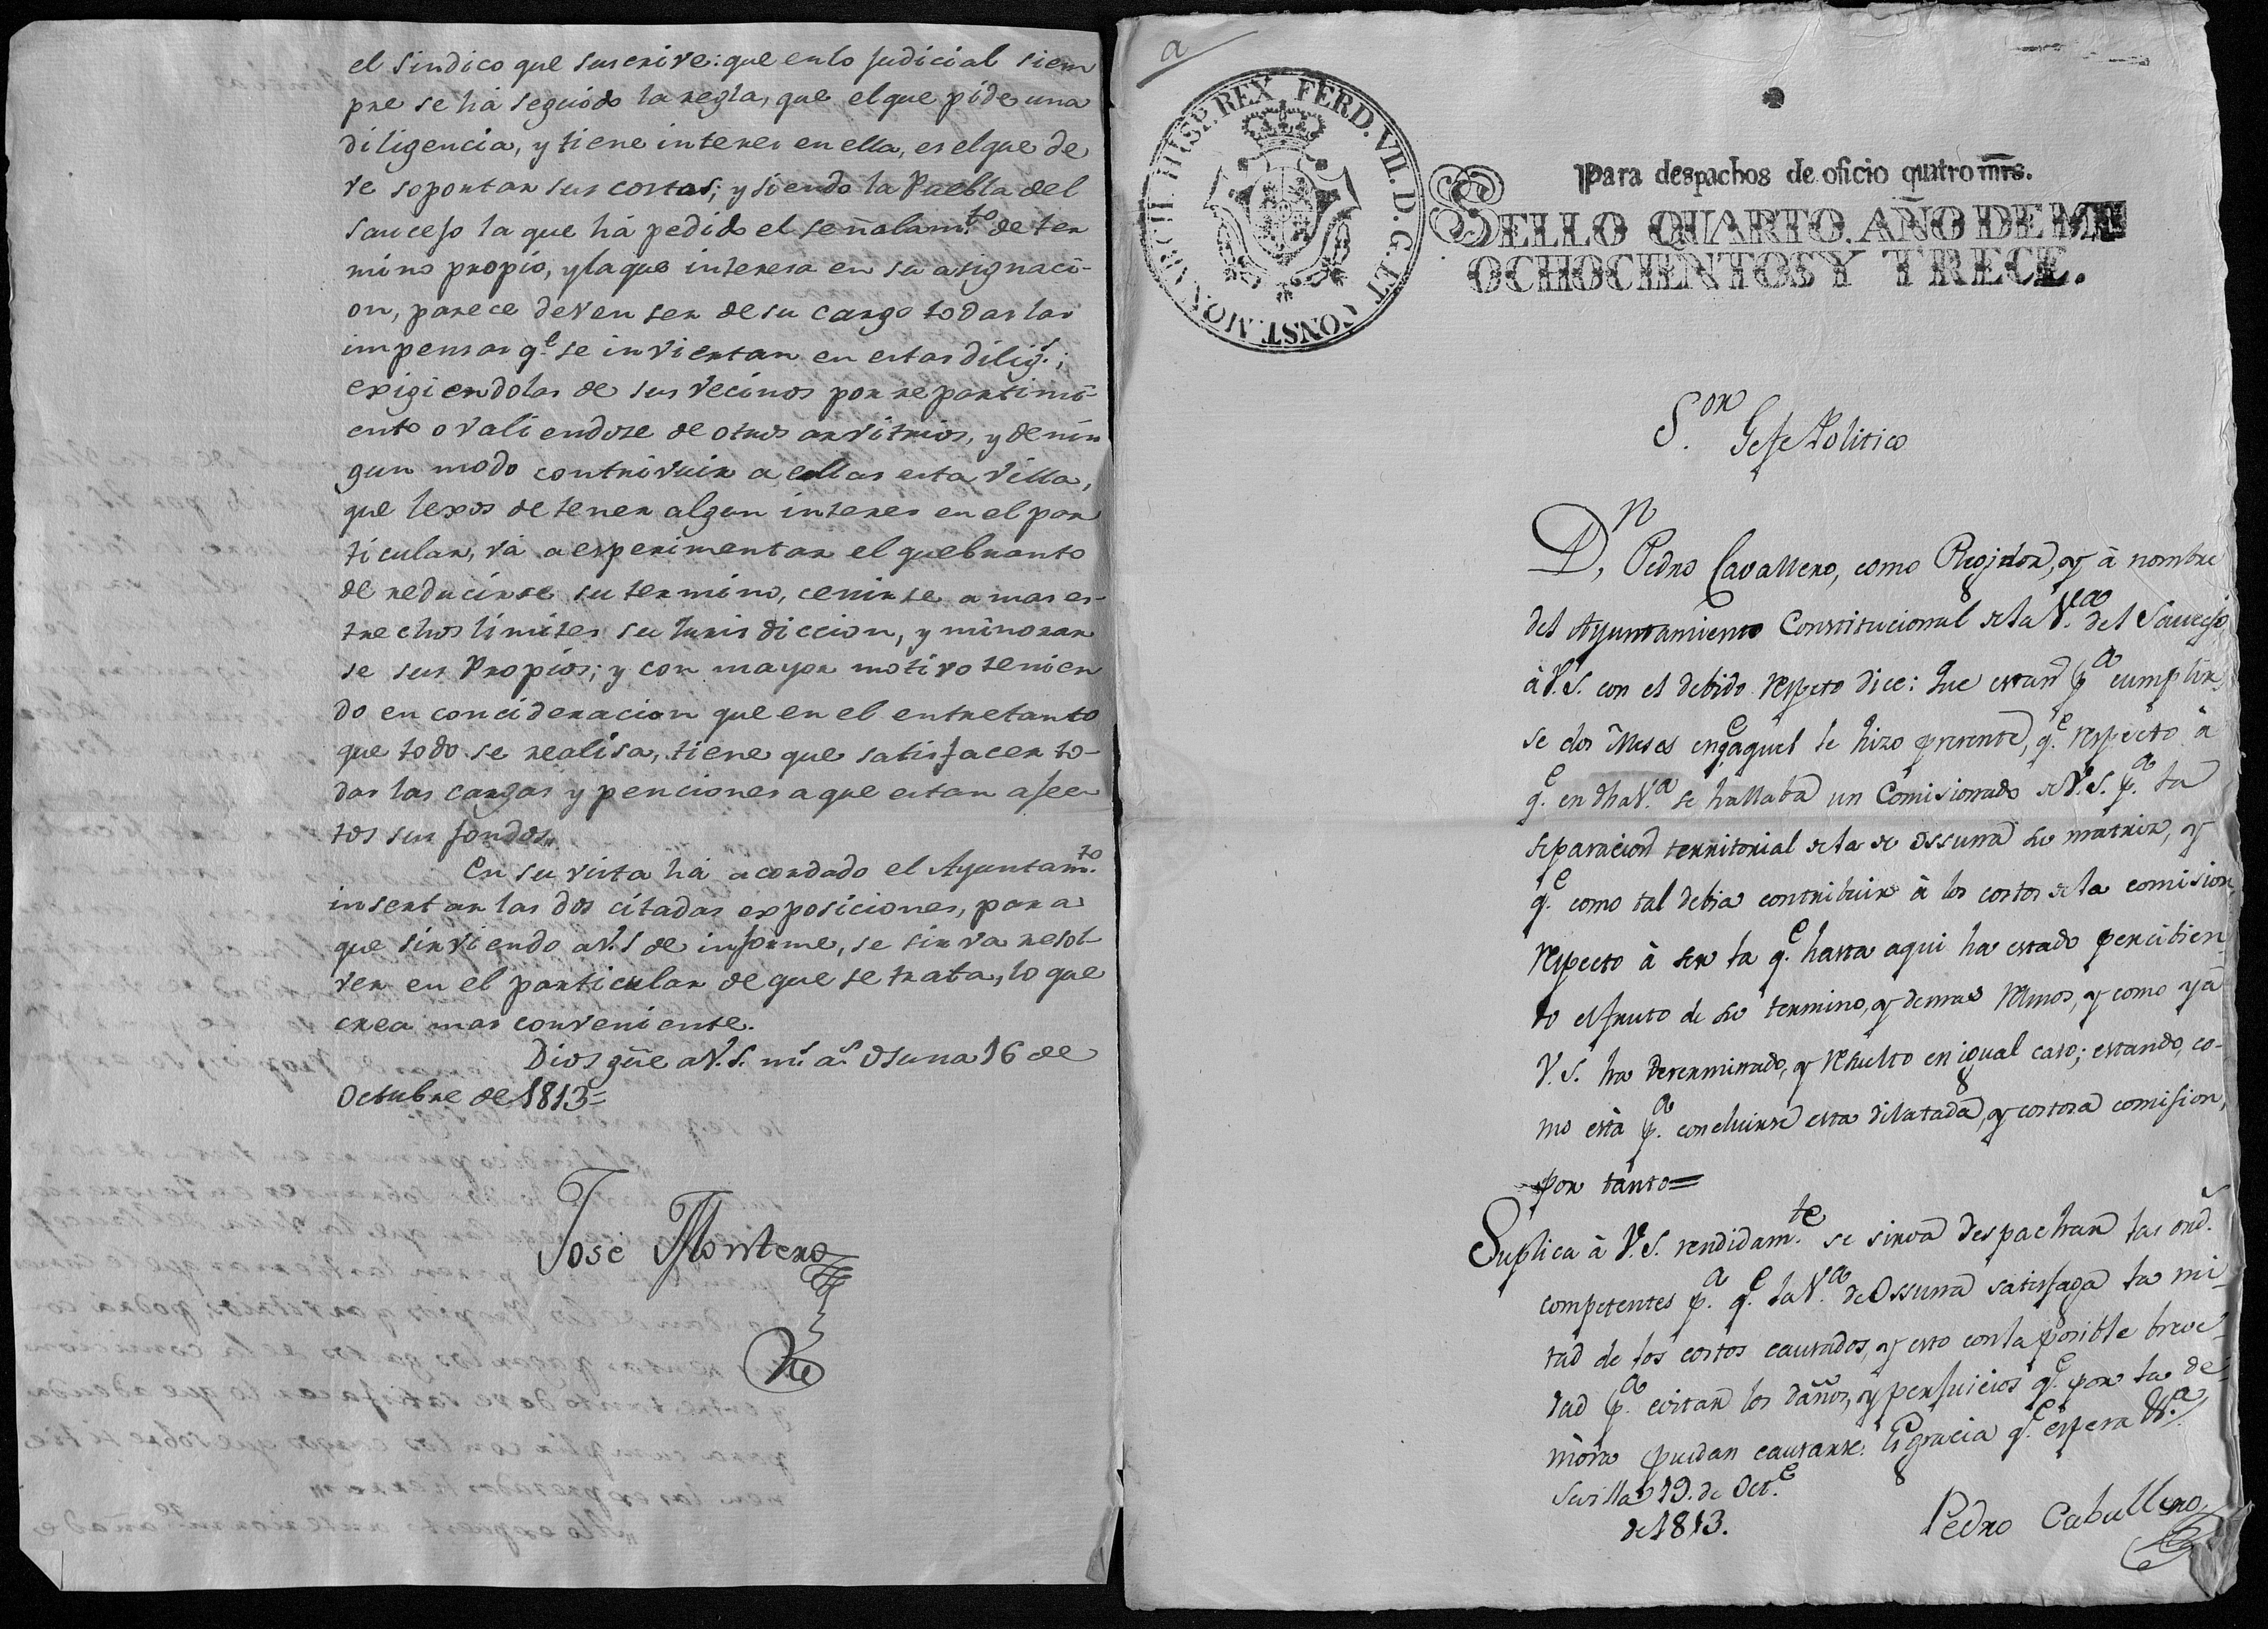 el Sindico que suscrive: que en lo judicial siem
pre se há seguido la regla, que el que pide una
diligencia, y tiene interes en ella, es el que de
ve soportar sus costas; y siendo la Puebla del
Saucejo la que há pedido el señalam.to de ter
mino propio, y la que interesa en su asignaci-
on, parece deven ser de su cargo todas las
impensas q.e se inviertan en estas dilig.s;
exigiendolas de sus vecinos por repartimi-
ento o valiendose de otros arvitrios, y de nin
gun modo contrivuir a ellas esta villa,
que lexos de tener algun interes en el par
ticular, vá a esperimentar el quebranto
de reducirse su termino, ceñirse a mas es-
trechos limites su Jurisdiccion, y minorar
se sus Propios; y con mayor motivo tenien
do en concideracion que en el entretanto
que todo se realisa, tiene que satisfacer to-
das las cargas y penciones a que estan afec
tos sus fondos,,
En su vista há acordado el Ayuntam.to
insertar las dos citadas exposiciones, para
que sirviendo a V.S de informe, se sirva resol-
ver en el particular de que se trata, lo que
crea mas conveniente.
Dios gũe a V.S. m.s a.s Osuna 16 de
Octubre de 1813=
José Montero
a
FERD. VII. D. G. ET CONST. MONARCH. HISP. REX
Para despachos de oficio quatro mrs.
SELLO QUARTO. AÑO DE MIL
OCHOCIENTOS Y TRECE.
S.or Gefe Politico
D.n Pedro Cavallero, como Regidor, y à nombre
del Ayuntamiento Constitucional de la V.a del Saucejo
à V.S. con el debido respeto dice: Que estan p.a cumplir
se dos Meses en q.e aquel le hizo presente, q.e respecto à
q.e en dha V.a se hallaba un Comisionado de V.S. p.a la
separacion territorial de la de Ossuna su matriz, y
q.e como tal debia contribuir à los costos de la comision,
respecto à ser la q.e hasta aqui ha estado percibien-
do el fruto de su termino, y demas ramos, y como yá
V.S. ha determinado, y resuelto en igual caso; estando, co-
mo està p.a concluirse esta dilatada, y costosa comision,
por tanto=
Suplica à V.S. rendidam.te se sirva despachar las ord.s
competentes p.a q.e la V.a de Ossuna satisfaga la mi
tad de los costos causados, y esto con la posible breve-
dad p.a evitar los daños, y perjuicios q.e por la de-
mora puedan causarse: Es gracia q.e espera
Sevilla 19. de Oct.e
de 1813.
Pedro Caballero